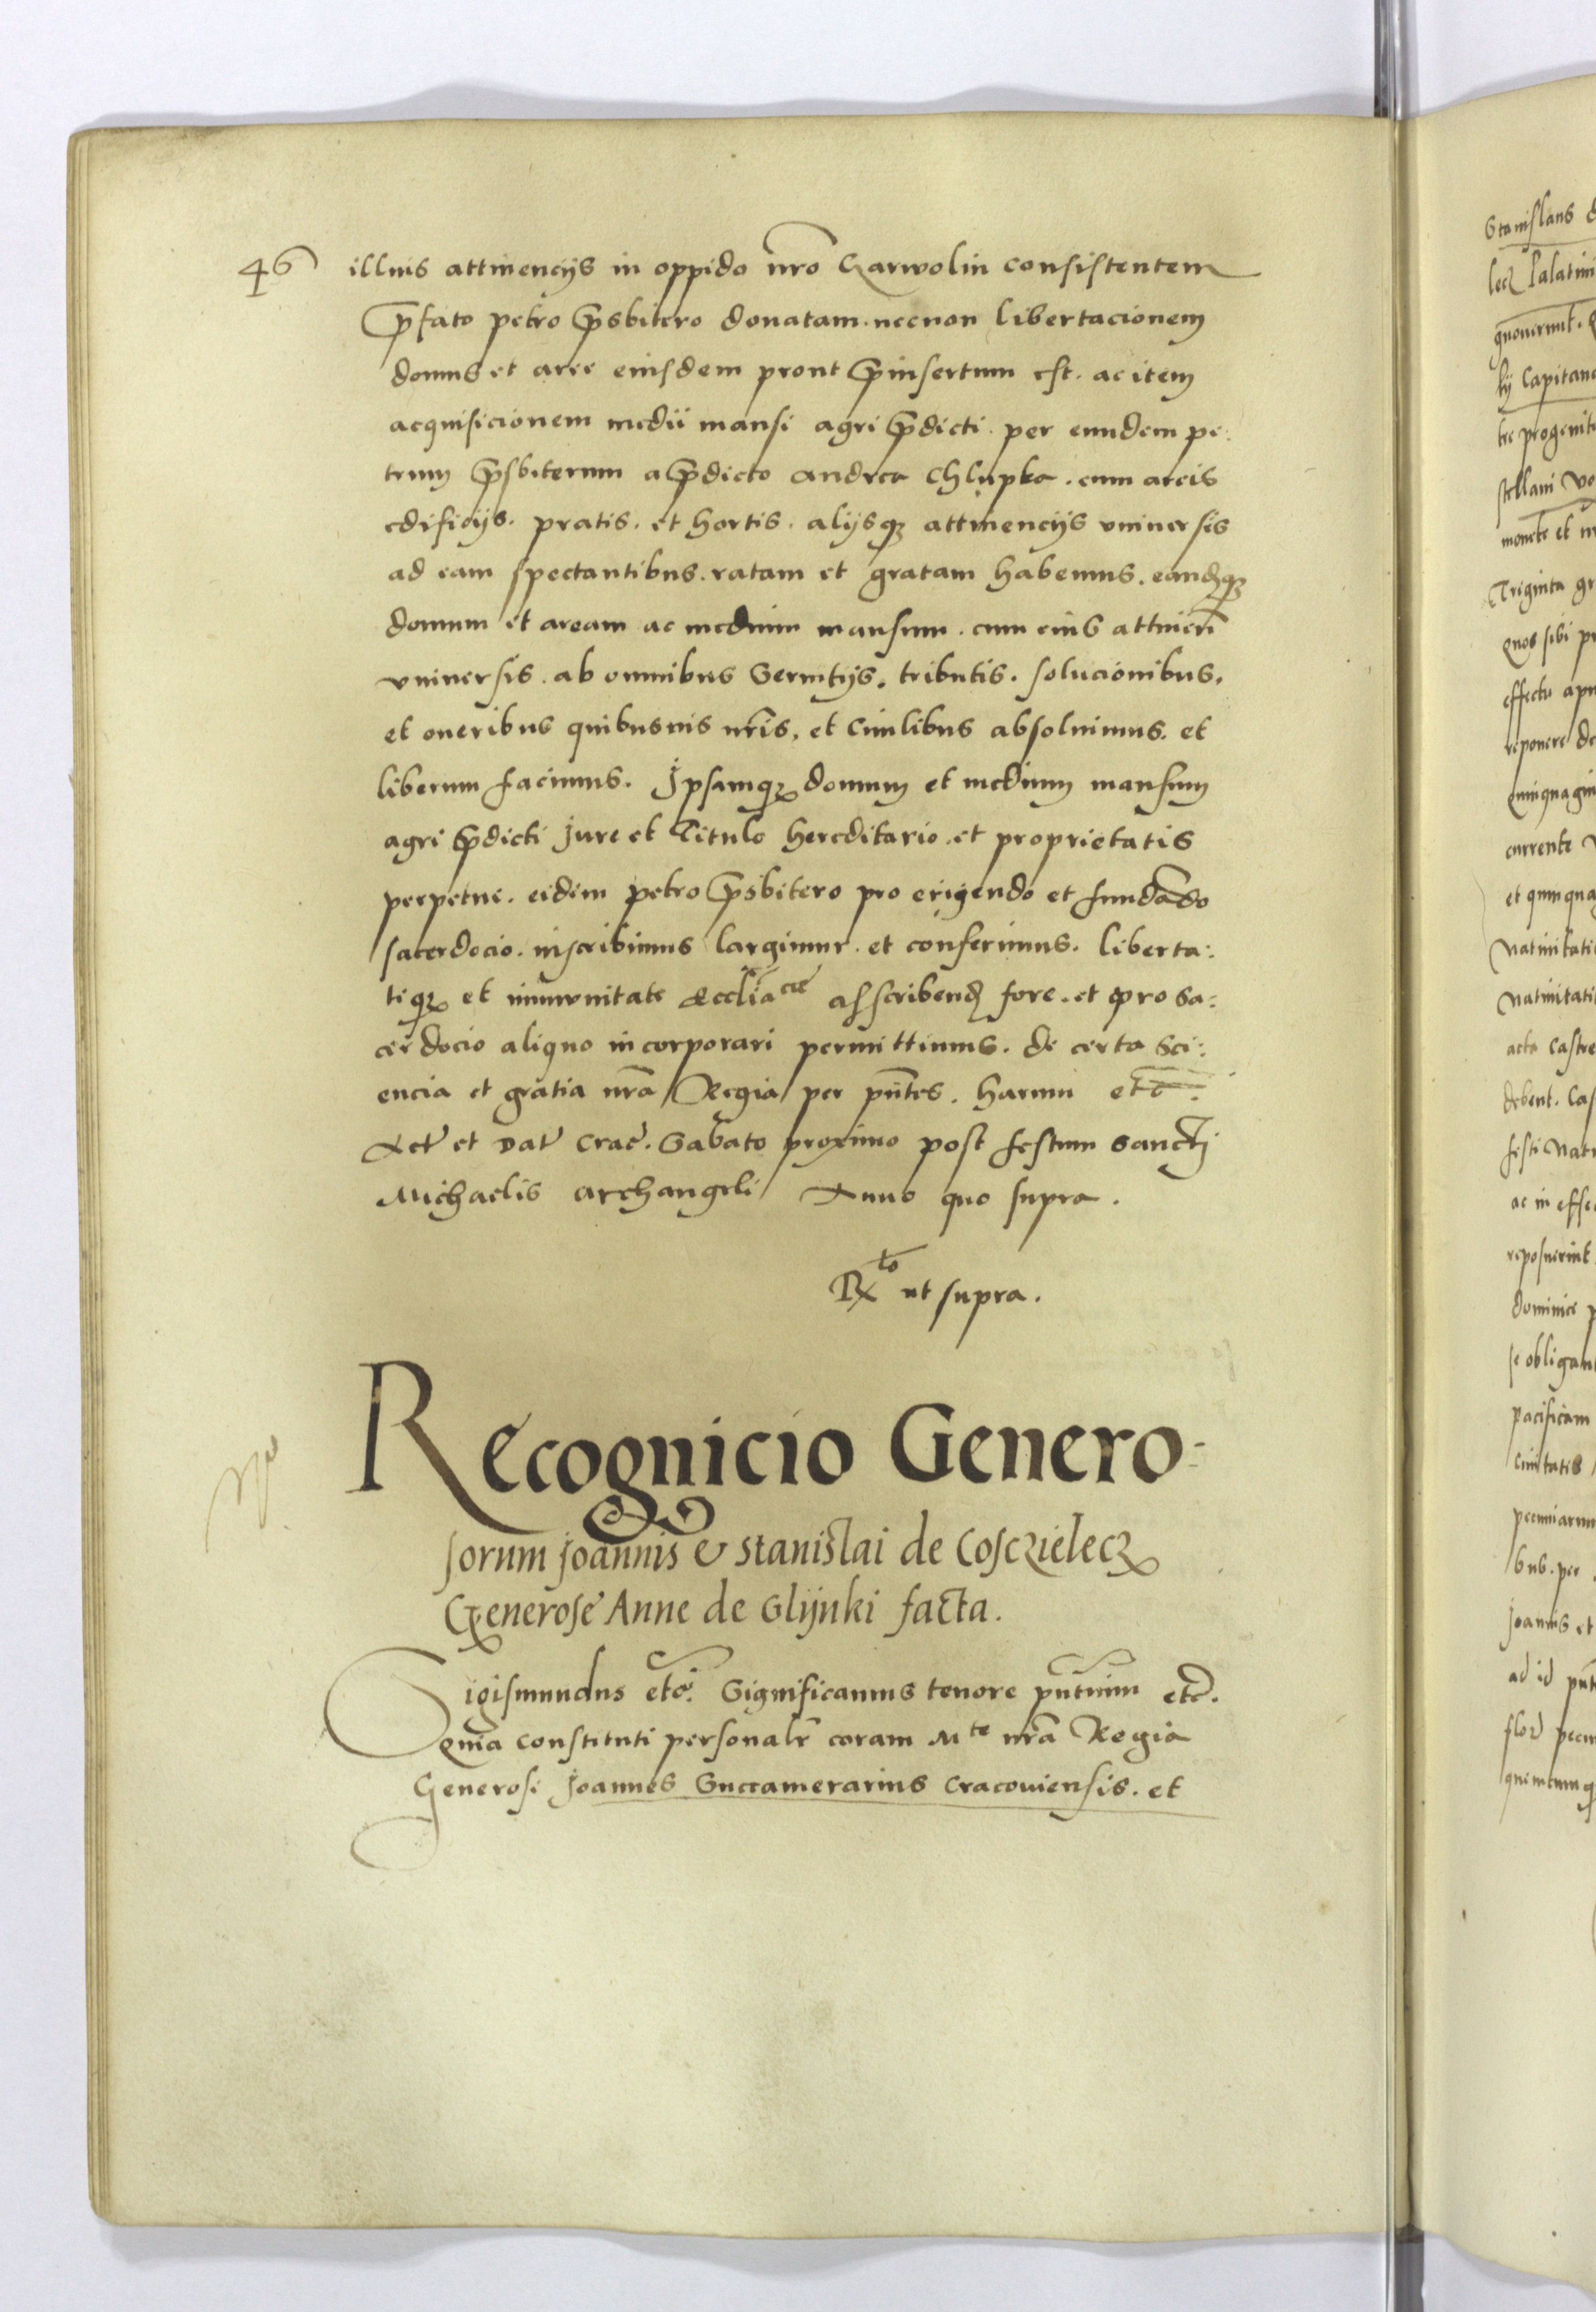 46 illius attinencijs in oppido nr̃o Garwolin consistentem
p̃fato petro p̃sbitero donatam. necnon libertacionem
domus et aree eiusdem prout p̃insertum est. ac item
acquisicionem medii mansi agri p̃dicti. per eundem pe:
trum p̃sbiterum a p̃dicto Andrea Chlupka. cum areis
edificijs. pratis. et hortis. alijsq; attinencijs vniuersis
ad eam spectantibus. ratam et gratam habemus. eandq;
domum et aream ac medium mansum. cum eius attinen̄
vniuersis. ab omnibus Seruitijs. tributis. solucionibus.
et oneribus quibusuis nr̃is, et Ciuilibus absoluimus. et
liberum facimus. Ipsamq; domum et medium mansum
agri p̃dicti Jure et Titulo hereditario et proprietatis
perpetue. eidem petro p̃sbitero pro erigendo et fundādo
sacerdocio. inscribimus largimur et conferimus. liberta:
tiq; et immunitate Eccliace asscribend fore. et pro Sa:
cerdocio aliquo incorporari permittimus. de certa Sci:
encia et gratia nr̃a Regia per pñtes. harum etc.
Act̃ et Dat̃ Crac̃. Sabato proximo post festum Sancti
Michaelis archangeli Anno quo supra.
Rto ut supra.
Recognicio Genero:
sorum Joannis & Stanislai de Cosczielecz
Generose Anne de Glijnki facta.
Sigismundus etc̃. Significamus tenore pñtium etc̃.
Quia Constituti personalr̃ coram Mte nr̃a Regia
Generosi Joannes Succamerarius Cracouiensis. et
Stanislaus
lecz Palatini
gnouerunt.
kj Capitane
tre progenit
stellani
monete et
Triginta gr
Quos sibi
effectu
reponere
Quinquagin
currente
et quinqua
Natiuitati
Natiuitati
acta Castre
debent.
festi Nat
ac in effe
reposuerint
dominice
se obligan
pacificam
Ciuitatis
pecuniarum
bus. per
Joannis et
ad id pñt
flor̃